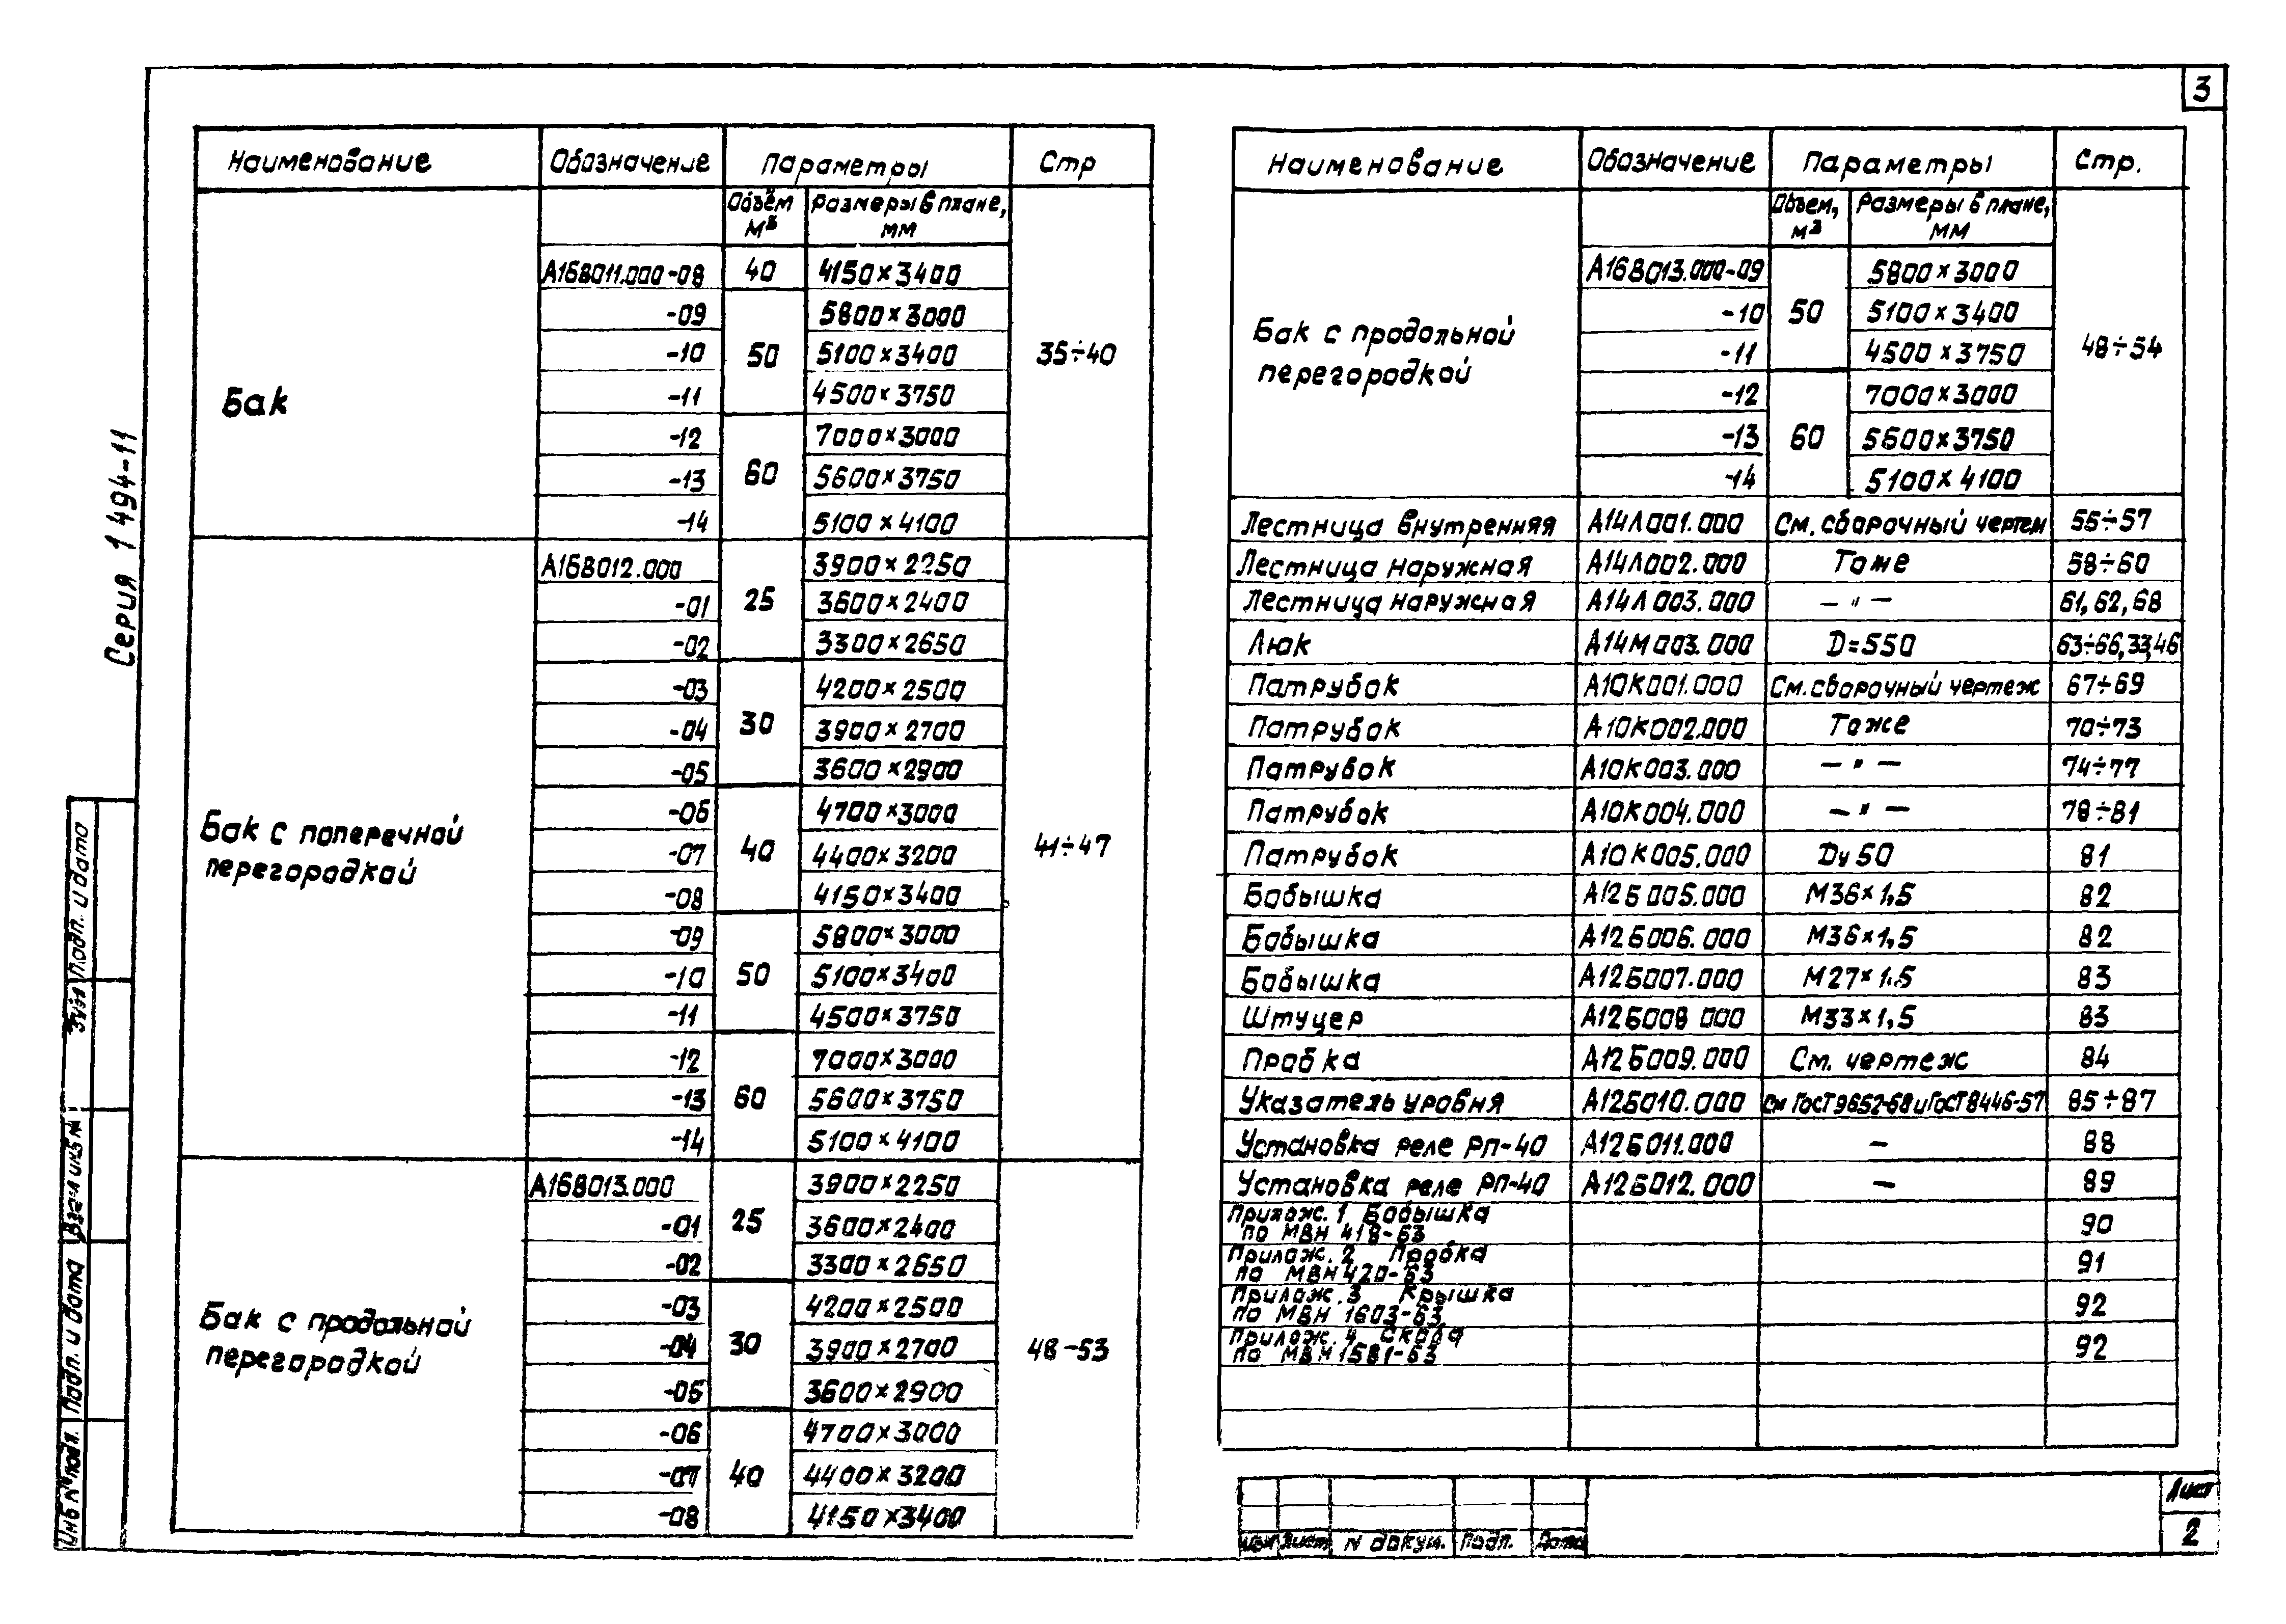 3
Серия 1 494-11
Наименование Обозначение Параметры Стр
Объём м³ Размеры в плане, мм
Бак
А16В011.000-08 40 4150×3400
-09 5800×3000
-10 50 5100×3400 35÷40
-11 4500×3750
-12 7000×3000
-13 60 5600×3750
-14 5100×4100
Бак с поперечной
перегородкой
А16В012.000 3900×2250
-01 25 3600×2400
-02 3300×2650
-03 4200×2500
-04 30 3900×2700
-05 3600×2900
-06 4700×3000
-07 40 4400×3200 41÷47
-08 4150×3400
-09 5800×3000
-10 50 5100×3400
-11 4500×3750
-12 7000×3000
-13 60 5600×3750
-14 5100×4100
Бак с продольной
перегородкой
А16В013.000 3900×2250
-01 25 3600×2400
-02 3300×2650
-03 4200×2500
-04 30 3900×2700 48-53
-05 3600×2900
-06 4700×3000
-07 40 4400×3200
-08 4150×3400
Наименование Обозначение Параметры Стр.
Объем, м³ Размеры в плане, мм
Бак с продольной
перегородкой
А16В013.000-09 5800×3000
-10 50 5100×3400
-11 4500×3750 48÷54
-12 7000×3000
-13 60 5600×3750
-14 5100×4100
Лестница внутренняя А14Л001.000 См. сборочный чертеж 55÷57
Лестница наружная А14Л002.000 Тоже 58÷60
Лестница наружная А14Л003.000 — " — 61, 62, 68
Люк А14М003.000 D=550 63÷66,33,46
Патрубок А10К001.000 См. сборочный чертеж 67÷69
Патрубок А10К002.000 Тоже 70÷73
Патрубок А10К003.000 — " — 74÷77
Патрубок А10К004.000 — " — 78÷81
Патрубок А10К005.000 Dу 50 81
Бобышка А12Б005.000 М36×1,5 82
Бобышка А12Б006.000 М36×1,5 82
Бобышка А12Б007.000 М27×1.5 83
Штуцер А12Б008 000 М33×1,5 83
Пробка А12Б009.000 См. чертеж 84
Указатель уровня А12Б010.000 См ГОСТ 9652-68 и ГОСТ 8446-57 85÷87
Установка реле РП-40 А12Б011.000 — 88
Установка реле РП-40 А12Б012.000 — 89
Прилож. 1 Бобышка
по МВН 418-63 90
Прилож. 2 Пробка
по МВН 420-63 91
Прилож. 3 Крышка
по МВН 1603-63 92
Прилож. 4 Скоба
по МВН 1581-63 92
Изм Лист N докум. Подп. Дата
Лист
2
Инв № подл. Подп. и дата Взам инв № Подп. и дата